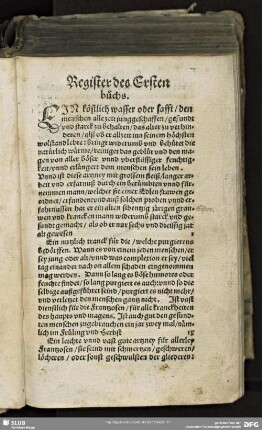 Register des Ersten
bůchs.
EIN köstlich wasser oder safft / den
menschen alle zeit jung geschaffen / gesundt
vnnd starck zu behalten / das alter zu verhin-
deren / als ob er all zeit inn seinem höchsten
wolstand lebte: bringt widerumb vnd behaltet die
natürlich wärme / reiniget das geblüt vnd den ma-
gen von aller böser vnnd vberflüssiger feuchtig-
keit / vnnd erlängert dem menschen sein leben.
Vnnd ist diese artzney mit grossem fleiß / langer ar-
beit vnd erfarnuß durch ein berůmbten vnnd für-
nemen mann / welcher sie einer Edlen frawen ge-
ordnet / erfunden vnd auß solchen proben vnnd er-
farnussen hat er ein alten siebentzig järigen
vnd krancken mann widerumb starck vnd ge-
sundt gemacht / als ob er nur sechs vnd dreissig jar
alt gewesen
Ein nutzlich tranck für die / welche purgierens
bedörffen. Wann es von einem jeden menschen / er
sey jung oder alt / vnnd was complexion er sey / viel
tag einander nach on allem schaden eingenommen
mag werden. Dann so lang es böse humores oder
feuchte findet / so lang purgiert es auch vnd so die
selbige außgeführt seind / purgiert es nicht mehr /
vnd verletzet den menschen gantz nicht. Ist vast
dienstlich für die Frantzosen / für alle kranckheiten
des haupts vnd magens. Ist auch gut den gesun-
ten menschen zugebrauchen ein jar zwey mal / näm-
lich im Früling vnd Herbst
Ein leichte vnnd vast gute artzney für allerley
Frantzosen / sie seind mit schmertzen / geschweren /
löcheren / oder sonst geschwulsten der gliederen:
SLUB
DFG